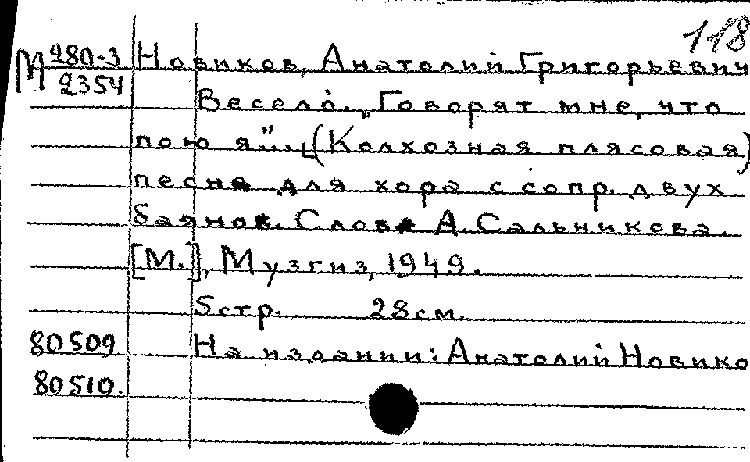 118
М 980-3 Новиков, Анатолий Григорьевич
2354 Весело. „Говорят мне, что
пою я"... (Колхозная плясовая)
песня для хора с сопр. двух
баянов. Слова А. Сальникова.
[М.], Музгиз, 1949.
5 стр. 28 см.
80509 На издании: Анатолий Новико
80510.